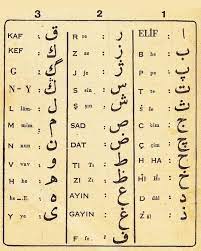 3 2 1
ELİF : ا
B be : ب
P pe : پ
T te : ت
S se : ث
C cim : ج
Ç çim : چ
H HA : ح
: خ
D dal : د
: ذ
R re : ر
Z ze : ز
J je : ژ
S sin : س
Ş şın : ش
SAD : ص
DAT : ض
TI Tı : ط
ZI Zı : ظ
AYIN : ع
GAYIN : غ
F fe : ف
KAF : ق
KEF : ك
G : گ
N-Y : ڭ
L lâm : ل
M mim : م
N nun : ن
V vav : و
H he : ه
he..E : ه
Y ye : ى